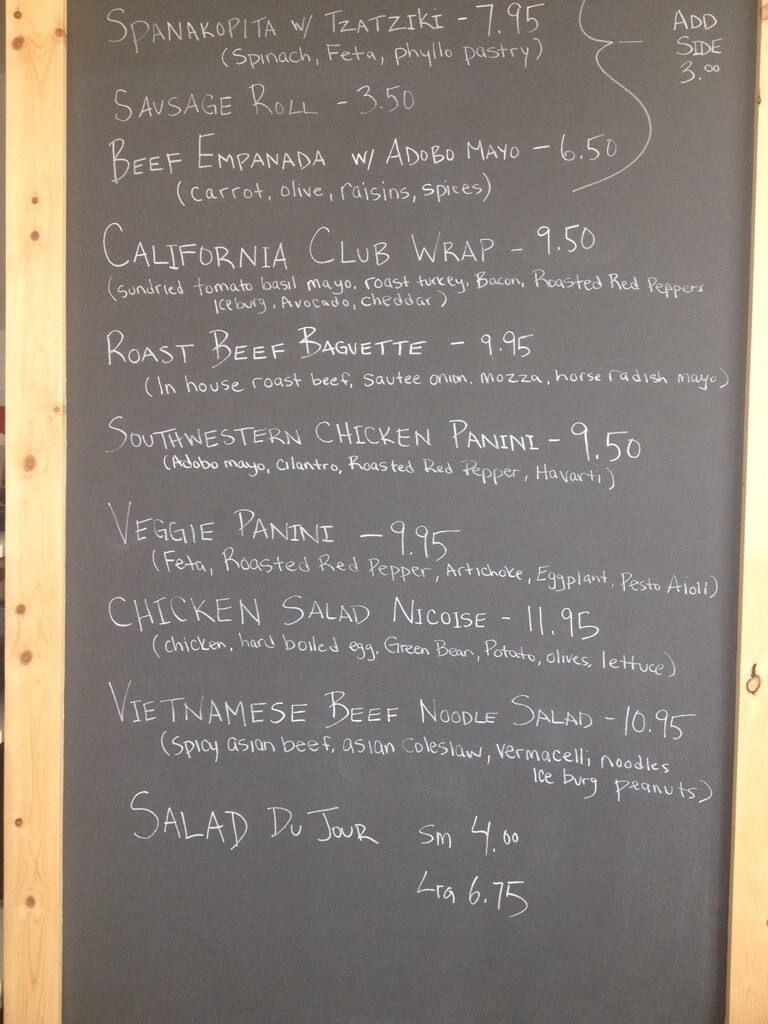 SPANAKOPITA W/ TZATZIKI - 7.95
(Spinach, Feta, phyllo pastry)
ADD
SIDE
3.00
SAUSAGE ROLL - 3.50
BEEF EMPANADA W/ ADOBO MAYO - 6.50
(carrot, olive, raisins, spices)
CALIFORNIA CLUB WRAP - 9.50
(sundried tomato basil mayo, roast turkey, Bacon, Roasted Red Peppers
Iceburg, Avocado, cheddar)
ROAST BEEF BAGUETTE - 9.95
(In house roast beef, sautee onion, mozza, horse radish mayo)
SOUTHWESTERN CHICKEN PANINI - 9.50
(Adobo mayo, cilantro, Roasted Red Pepper, Havarti)
VEGGIE PANINI - 9.95
(Feta, Roasted Red Pepper, Artichoke, Eggplant, Pesto Aioli)
CHICKEN SALAD NICOISE - 11.95
(chicken, hard boiled egg, Green Bean, Potato, olives, lettuce)
VIETNAMESE BEEF NOODLE SALAD - 10.95
(Spicy asian beef, asian coleslaw, vermacelli noodles
Ice burg peanuts)
SALAD DU JOUR Sm 4.00
Lrg 6.75